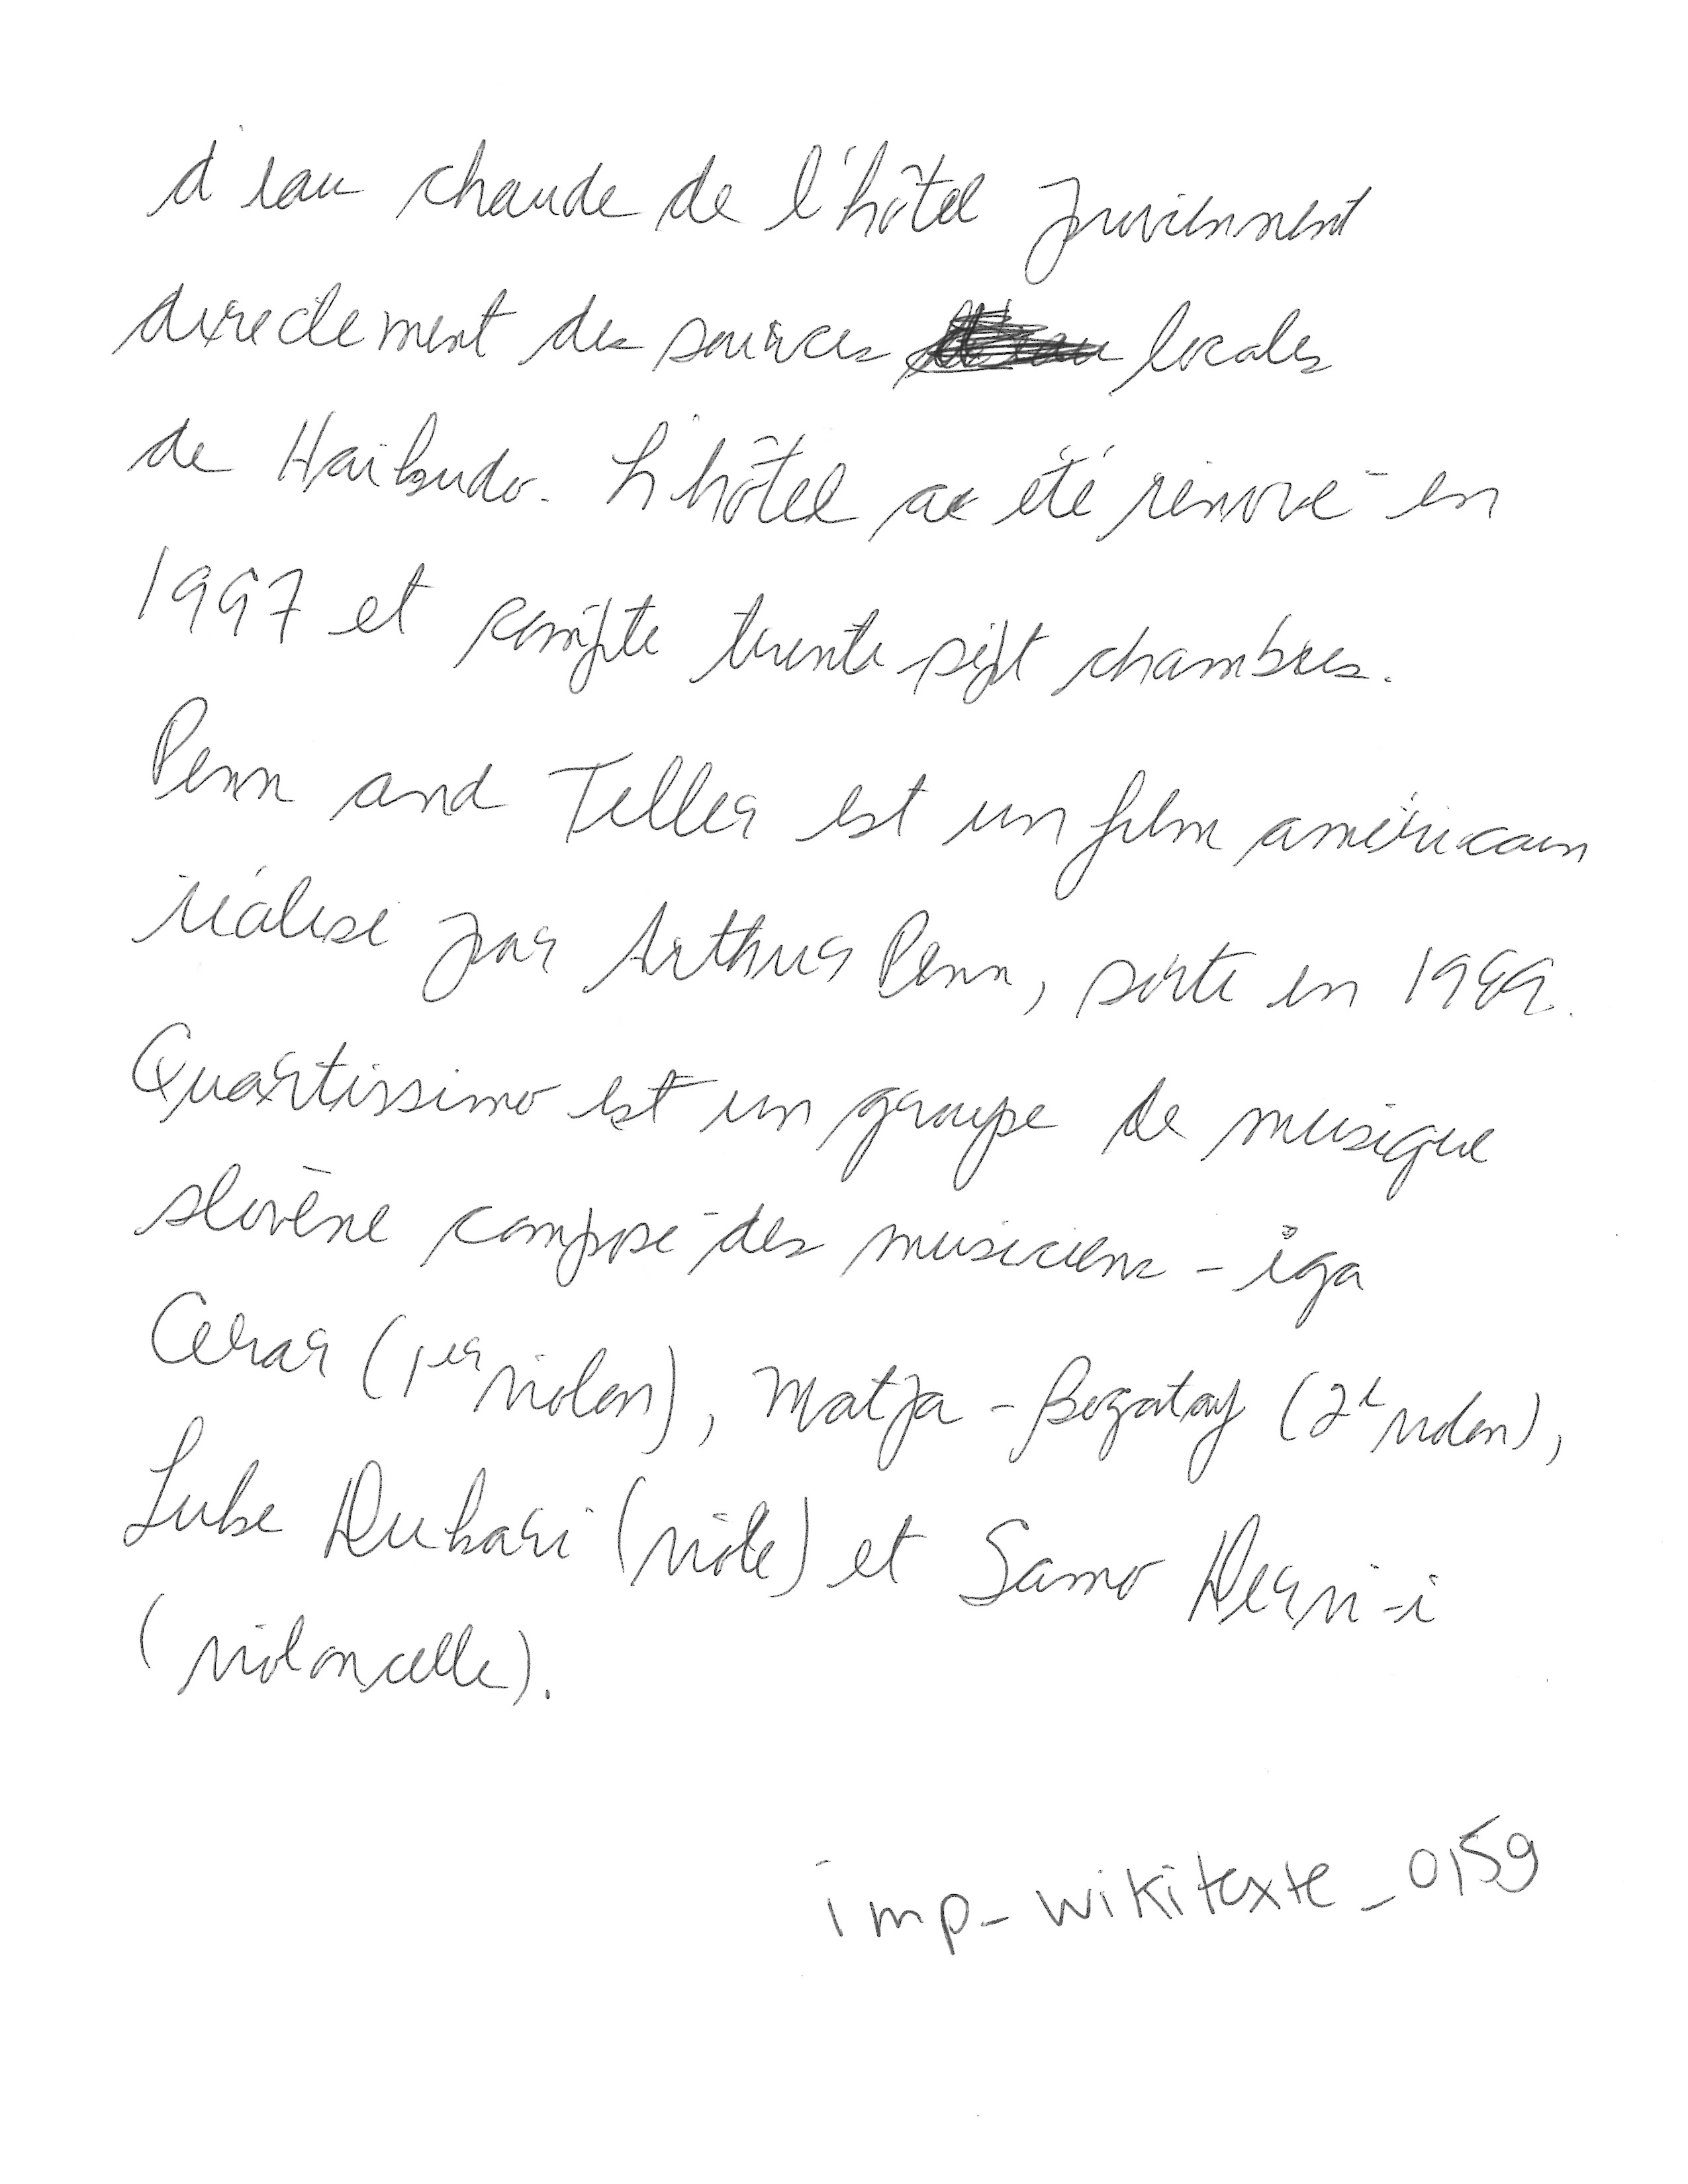 d'eau chaude de l'hôtel proviennent
directement des sources locales
de Haikudo. L'hôtel a été rénové en
1997 et compte trente-sept chambres.
Penn and Teller est un film américain
réalisé par Arthur Penn, sorte en 1989.
Quartissimo est un groupe de musique
slovène composé des musiciens - iga
Cerar (1er violon), Matja - Bogataj (2e violon),
Luke Dukari (viole) et Samo Derni-i
(violoncelle).
imp_wikitexte_0159